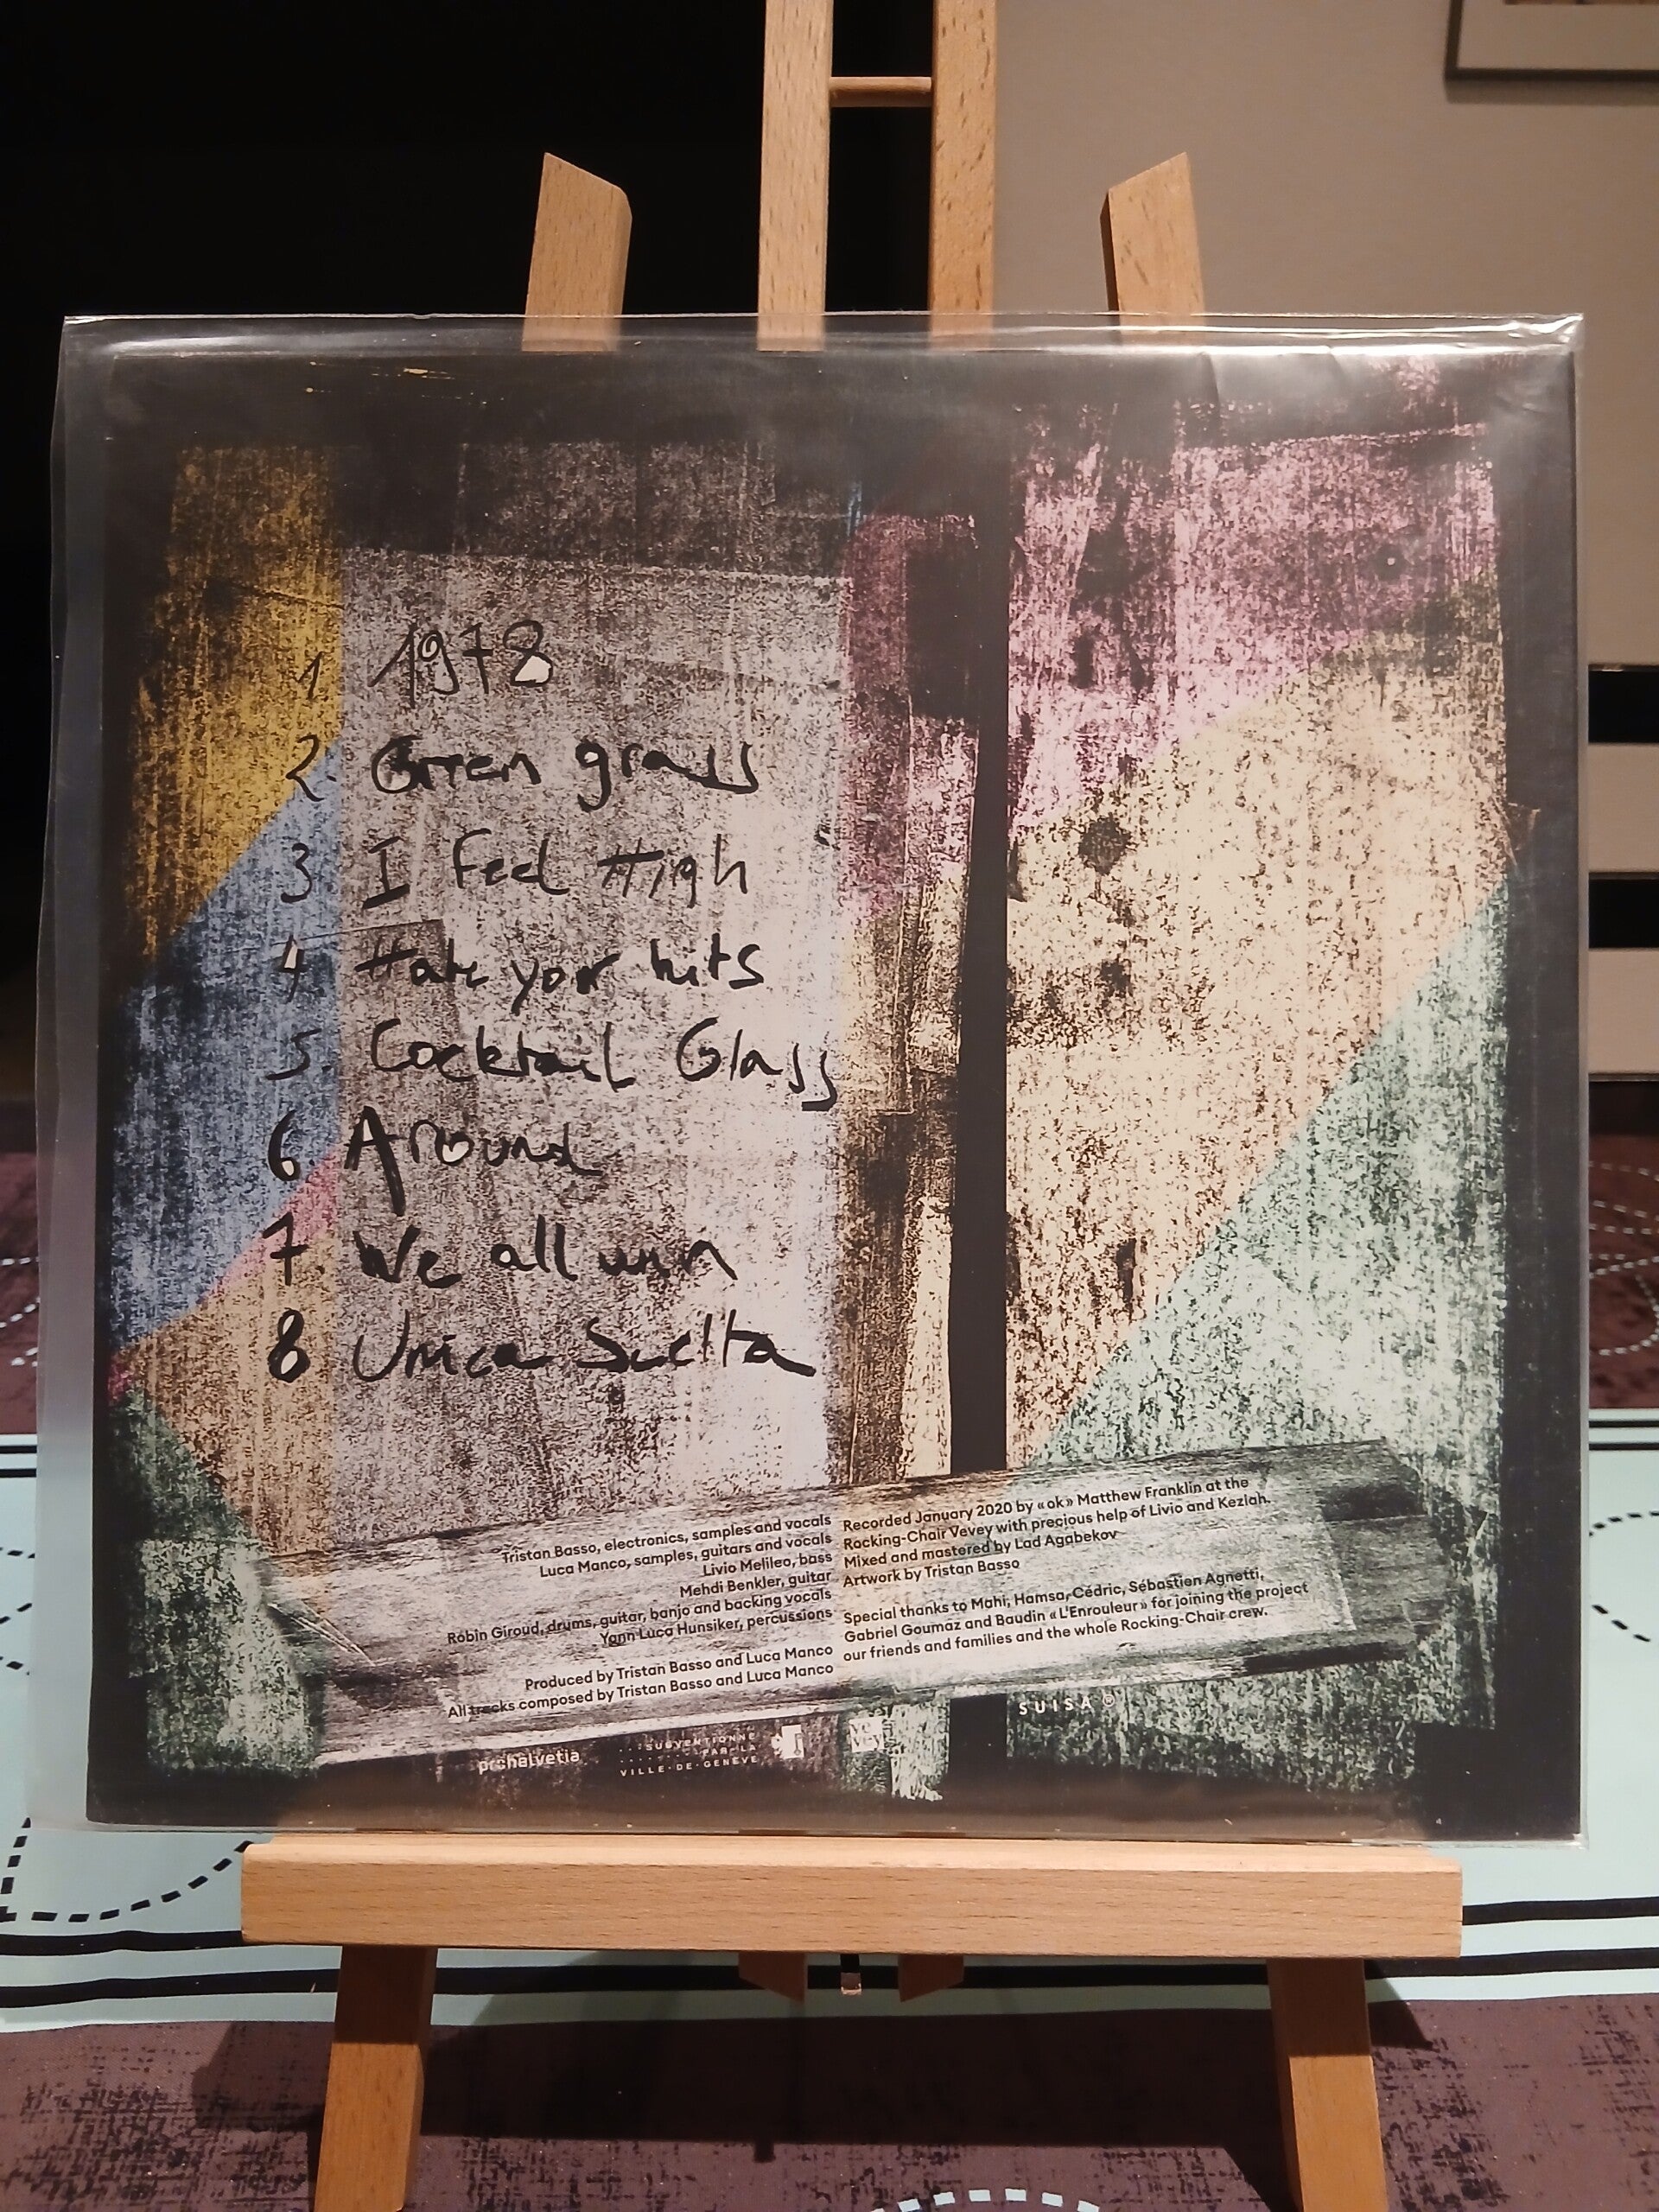 1 1978
2. Green grass
3 I feel High
4 Hate your hits
5. Cocktail Glass
6 Around
7. We all win
8 Unica Suelta
Tristan Basso, electronics, samples and vocals
Luca Manco, samples, guitars and vocals
Livio Melileo, bass
Mehdi Benkler, guitar
Robin Giroud, drums, guitar, banjo and backing vocals
Yann Luca Hunsiker, percussions
Produced by Tristan Basso and Luca Manco
All tracks composed by Tristan Basso and Luca Manco
Recorded January 2020 by «ok» Matthew Franklin at the
Rocking-Chair Vevey with precious help of Livio and Keziah.
Mixed and mastered by Lad Agabekov
Artwork by Tristan Basso
Special thanks to Mahi, Hamsa, Cédric, Sébastien Agnetti,
Gabriel Goumaz and Baudin «L'Enrouleur» for joining the project
our friends and families and the whole Rocking-Chair crew.
SUISA
prohelvetia
SUBVENTIONNÉ
PAR·LA
VILLE·DE·GENÈVE
ve
vey